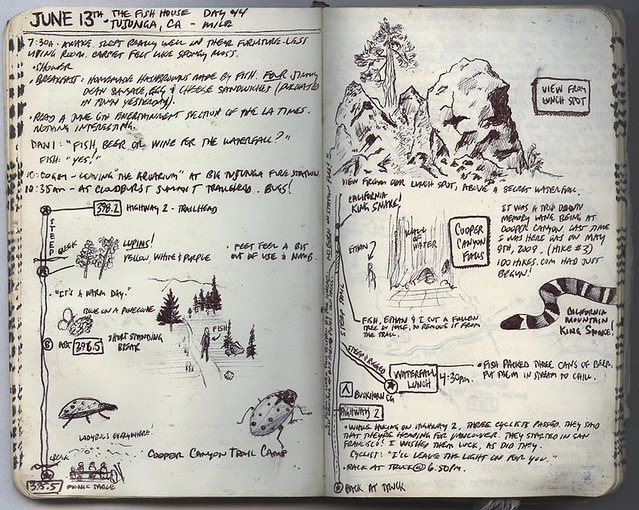 JUNE 13TH THE FISH HOUSE DAY 44
TUJUNGA, CA - MILE
7:30A - AWAKE. SLEPT REALLY WELL IN THEIR FURNITURE-LESS
LIVING ROOM. CARPET FELT LIKE SPONGY MOSS.
• SHOWER
• BREAKFAST: HOMEMADE HASHBROWNS MADE BY FISH. FOUR JIMMY
DEAN SAUSAGE, EGG & CHEESE SANDWICHES (PURCHASED
IN TOWN YESTERDAY).
• READ A JUNE 6TH ENTERTAINMENT SECTION OF THE LA TIMES.
NOTHING INTERESTING.
DANI: "FISH, BEER OR WINE FOR THE WATERFALL?"
FISH: "YES!"
10:00AM - LEAVING "THE AQUARIUM" AT BIG TUJUNGA FIRE STATION
10:35AM - AT CLOUDBURST SUMMIT TRAILHEAD. BUGS!
398.2 HIGHWAY 2 - TRAILHEAD
STEEP
CREEK
LUPINS!
YELLOW, WHITE & PURPLE
• FEET FEEL A BIT
OUT OF USE & NUMB.
• "IT'S A WARM DAY."
ON A PINECONE
398.5
SHORT STANDING
BREAK
FISH
LADYBUGS EVERYWHERE!
COOPER CANYON TRAIL CAMP
393.5
PICNIC TABLE
VIEW FROM
LUNCH SPOT
VIEW FROM OUR LUNCH SPOT, ABOVE A SECRET WATERFALL.
CALIFORNIA
KING SNAKE!
ETHAN
WALL OF
WATER
COOPER
CANYON
FALLS
IT WAS A TRIP DOWN
MEMORY LANE BEING AT
COOPER CANYON. LAST TIME
I WAS HERE WAS ON MAY
9TH, 2009. (HIKE #3)
100HIKES.COM HAD JUST
BEGUN!
STEEP TRAIL
FISH, ETHAN & I CUT A FALLEN
TREE BY KNIFE, TO REMOVE IT FROM
THE TRAIL.
CALIFORNIA
MOUNTAIN
KING SNAKE!
WATERFALL
LUNCH
4:30PM.
• FISH PACKED THREE CANS OF BEER.
PUT THEM IN STREAM TO CHILL.
BUCKHORN CG
HIGHWAY 2
• WHILE HIKING ON HIGHWAY 2, THREE CYCLISTS PASSED. THEY SAID
THAT THEY'RE HEADING FOR VANCOUVER. THEY STARTED IN SAN
FRANCISCO! I WISHED THEM LUCK, AS DID THEY.
CYCLIST: "I'LL LEAVE THE LIGHT ON FOR YOU."
- BACK AT TRUCK @ 6:50PM.
BACK AT TRUCK